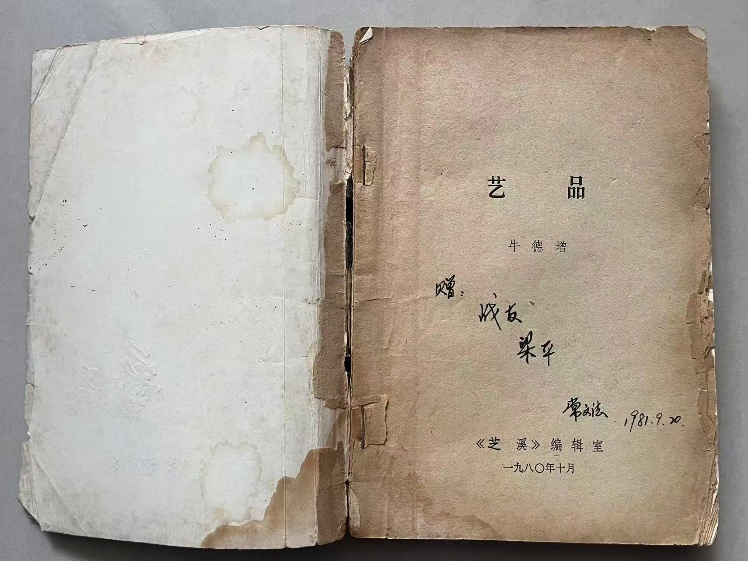 艺 品
牛德增
赠：
战友
梁平
常文法 1981.9.20.
《芝溪》编辑室
一九八〇年十月